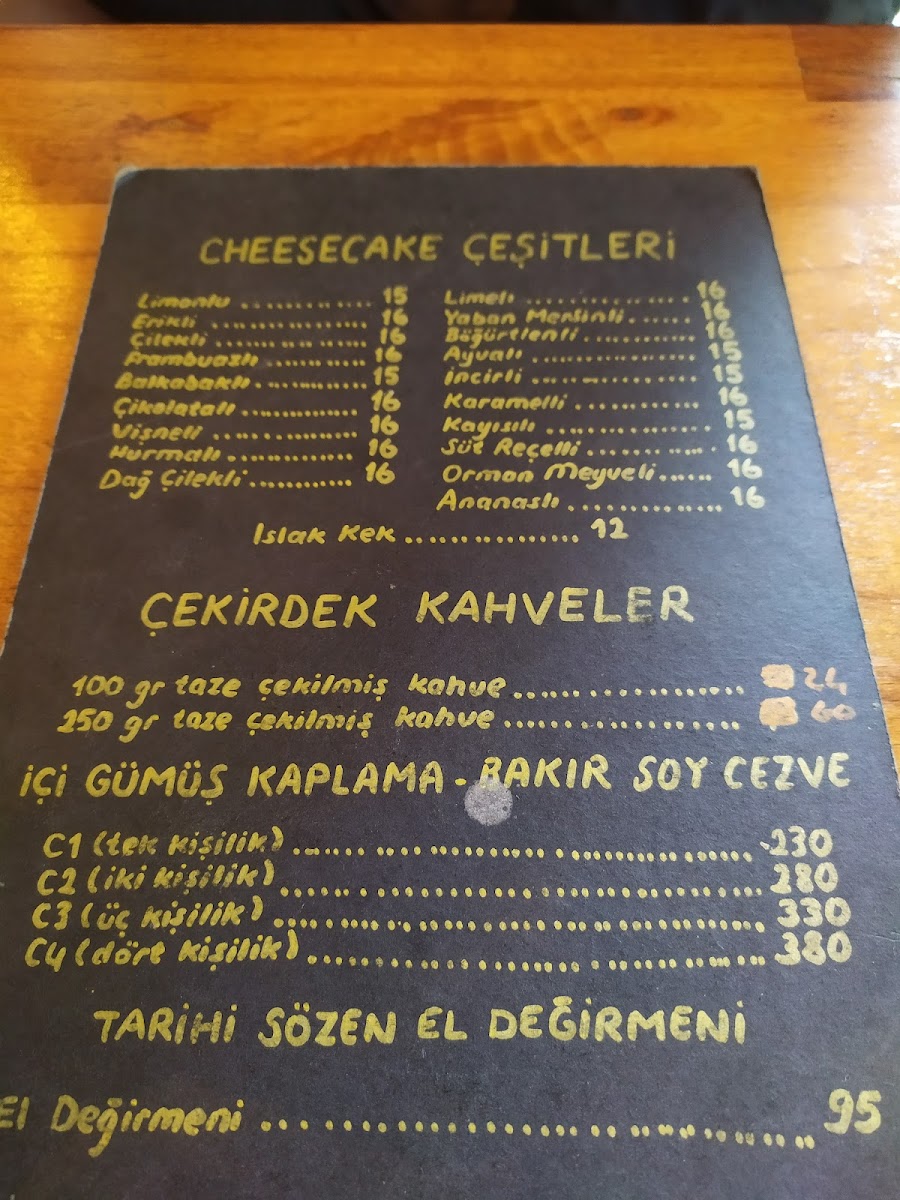 CHEESECAKE ÇEŞİTLERİ
Limonlu .............. 15
Erikli .................. 16
Çilekli .................. 16
Frambuazlı ............ 16
Balkabaklı ............. 15
Çikolatalı .............. 16
Vişneli ................. 16
Hurmalı ................ 16
Dağ Çilekli ............ 16
Limeli ................ 16
Yaban Mersinli ...... 16
Böğürtlenli ............ 16
Ayvalı .................. 15
İncirli .................. 15
Karamelli .............. 16
Kayısılı ................ 15
Süt Reçelli ............ 16
Orman Meyveli ...... 16
Ananaslı ............... 16
Islak Kek ................ 12
ÇEKİRDEK KAHVELER
100 gr taze çekilmiş kahve ........................ 24
250 gr taze çekilmiş kahve ........................ 60
İÇİ GÜMÜŞ KAPLAMA - BAKIR SOY CEZVE
C1 (tek kişilik) ................................ 230
C2 (iki kişilik) ................................ 280
C3 (üç kişilik) ................................ 330
C4 (dört kişilik) ................................ 380
TARİHİ SÖZEN EL DEĞİRMENİ
El Değirmeni ................................ 95